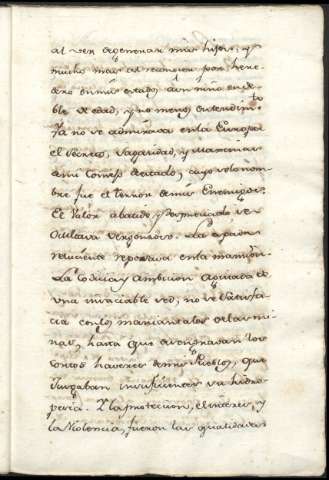 al ver agenerar mis hijos; y
mucho mas al reconocer por here-
dero en mis estados a un niño ende-
ble de edad, y no menos entendim.to
Ya no se admirava en la Europa
el Secreto, Sagacidad, y Maximas
de mi Consejo de estado, cuyo solo nom-
bre fue el terror de mis Enemigos.
El Valor abatido y despreciado se
ocultava vergonzoso. La espada
reluciente reposava en la
La Codicia y ambicion agitada de
una insaciable sed, no se satisfa-
cia con los manantiales de las mi-
nas, hasta que agotavan los
cortos haveres de mis Pueblos, que
Juzgaban insuficientes a su hidro-
pesia. Y la proteccion, el interes, y
la Violencia, fueron las qualidades